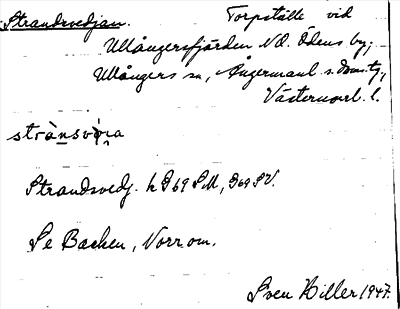 Strandsvedjan. Torpställe vid
Ullångersfjärden NV. Ödens by,
Ullångers sn, Ångermanl. s. doms.tg,
Västernorrl. l.
strànsvə̀ra
Strandsvedj. h G69 SM, G69 SV.
Se Backen, Norrom.
Sven Hiller 1947.